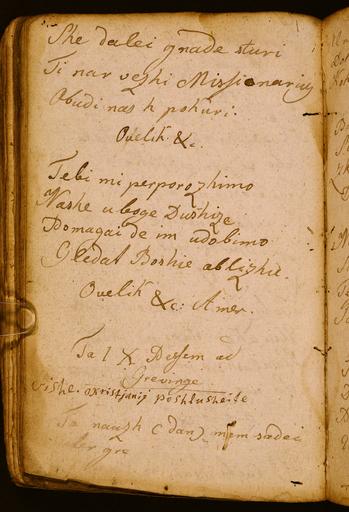 She dalei gnade sturi
Ti nar vezhi Missionariy
Obudi nas k pokuri.
Ovelik &c.
Tebi mi perporozhimo
Nashe uboge Dushize
Pomagai de im udobimo
Gledat Boshie oblizhie.
Ovelik &c: Amen.
Ta 1 X Pessem od
Grevinge
vishe. oxristjanij poshlusheite
Ta naush c dan